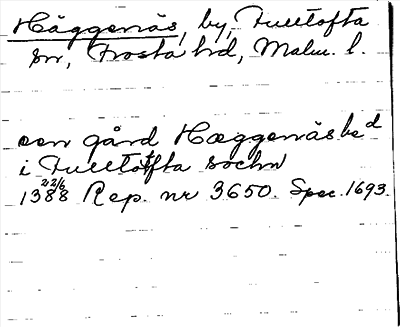 Häggenäs, by, Fulltofta
sn, Frosta hd, Malm. l.
een gård Hæggenäs be d
i Fulltofta sochn
1388 22/6 Rep. nr 3650. Spec. 1693.